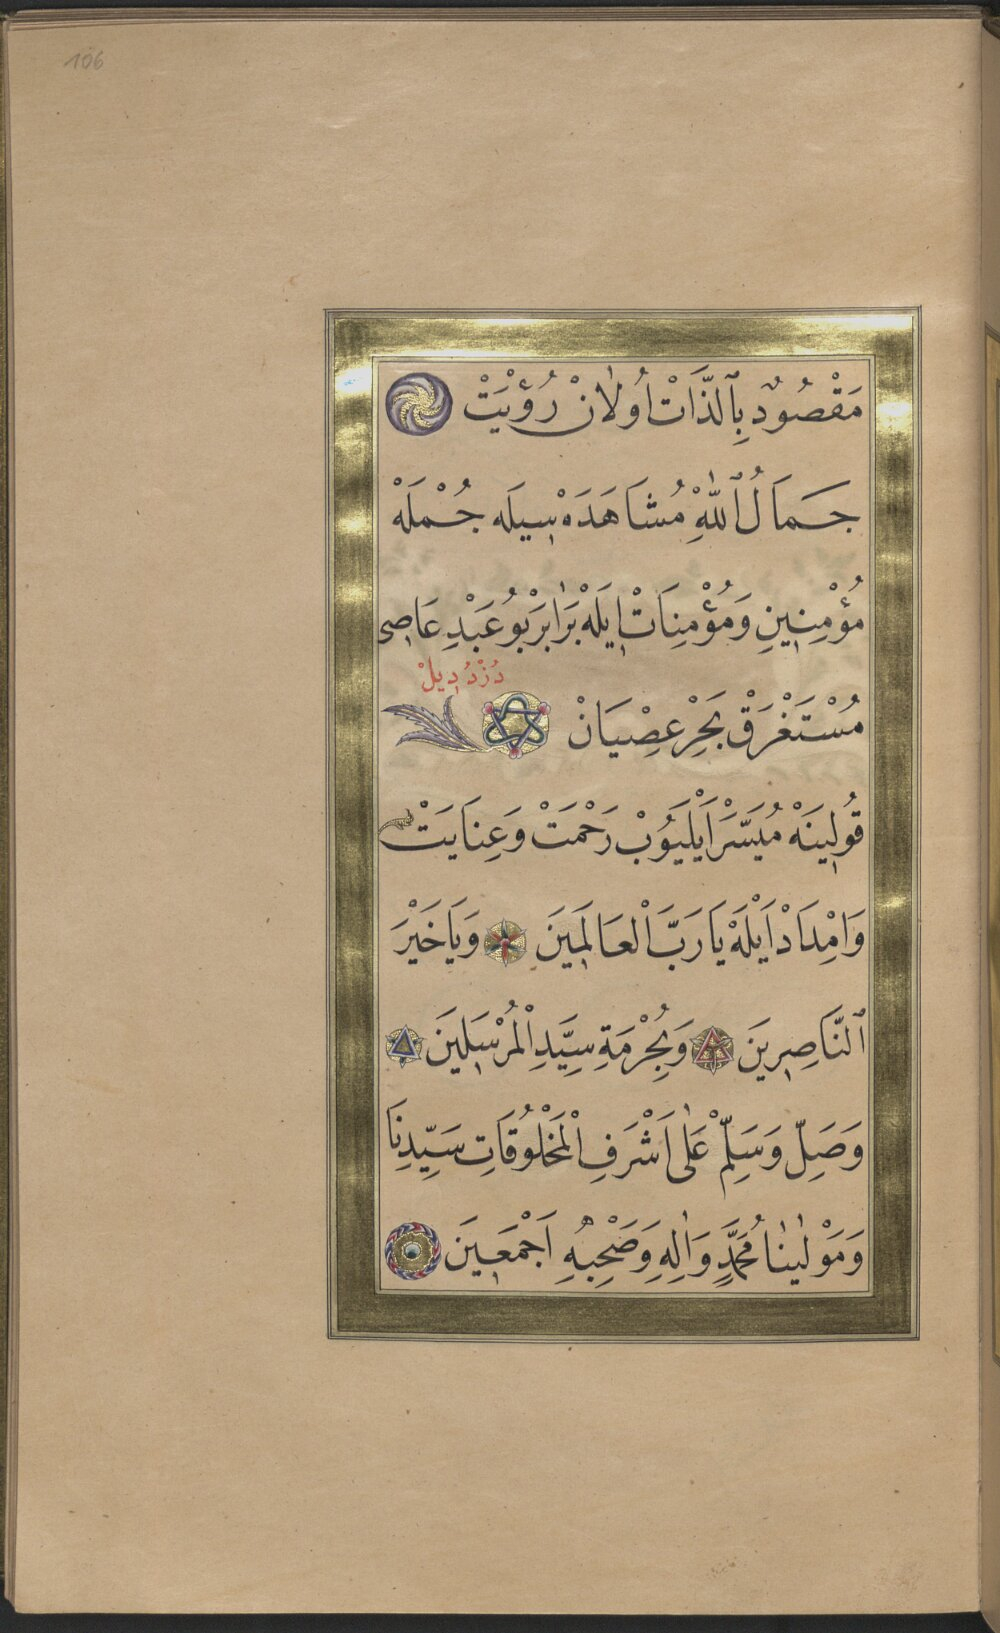 106
مَقْصُودْ بِٱلذَّاتْ اُولَانْ رُؤْيَتْ
جَمَالُ ٱللّٰهِ مُشَاهَدَهْ سِيلَه جُمْلَهْ
مُؤْمِنِينِ وَمُؤْمِنَاتْ اِيلَهْ بَرَابَرْ بُو عَبْدِ عَاصِى
دُرْدُ دِيلْ
مُسْتَغْرَقْ بَحْرِ عِصْيَانْ
قُولِينَهْ مُيَسَّرْ اَيْلَيُوبْ رَحْمَتْ وَعِنَايَتْ
وَامْدَادْ اَيْلَهْ يَا رَبَّ اْلعَالَمِينَ وَيَا خَيْرَ
ٱلنَّاصِرِينَ وَبِحُرْمَةِ سَيِّدِ اْلمُرْسَلِينَ
وَصَلِّ وَسَلِّمْ عَلٰى اَشْرَفِ اْلمَخْلُوقَاتِ سَيِّدِنَا
وَمَوْلٰينَا مُحَمَّدٍ وَاٰلِهِ وَصَحْبِهِ اَجْمَعِينَ